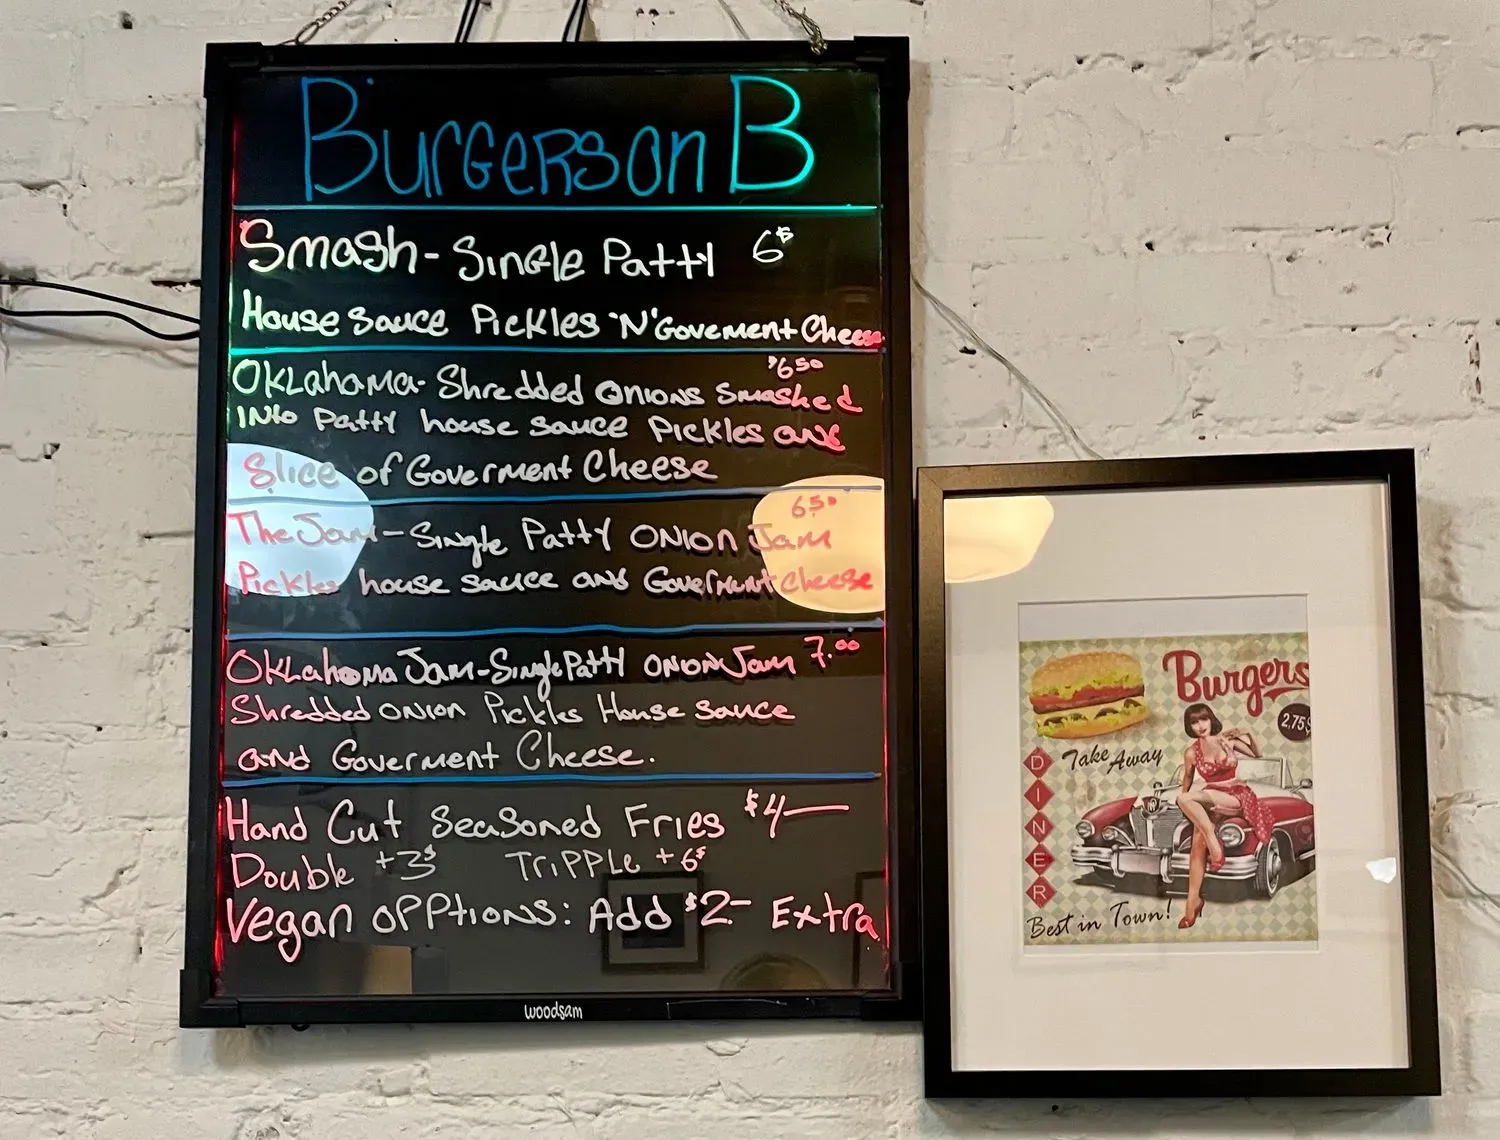 Burgerson B
Smash - Single Patty 6$
House Sauce Pickles 'N' Govement Cheese
$650
Oklahoma - Shredded Onions Smashed
INto Patty house sauce Pickles and
Slice of Goverment Cheese
650
The Jam - Single Patty ONION Jam
Pickles house sauce and Goverment cheese
Oklahoma Jam - Single Patty ONION Jam 7.00
Shredded ONION Pickles House sauce
and Goverment Cheese.
Hand Cut Seasoned Fries $4—
Double +3$ Tripple +6$
Vegan opptions: Add $2- Extra
woodsam
Burgers
2,75$
Take Away
DINER
Best in Town!